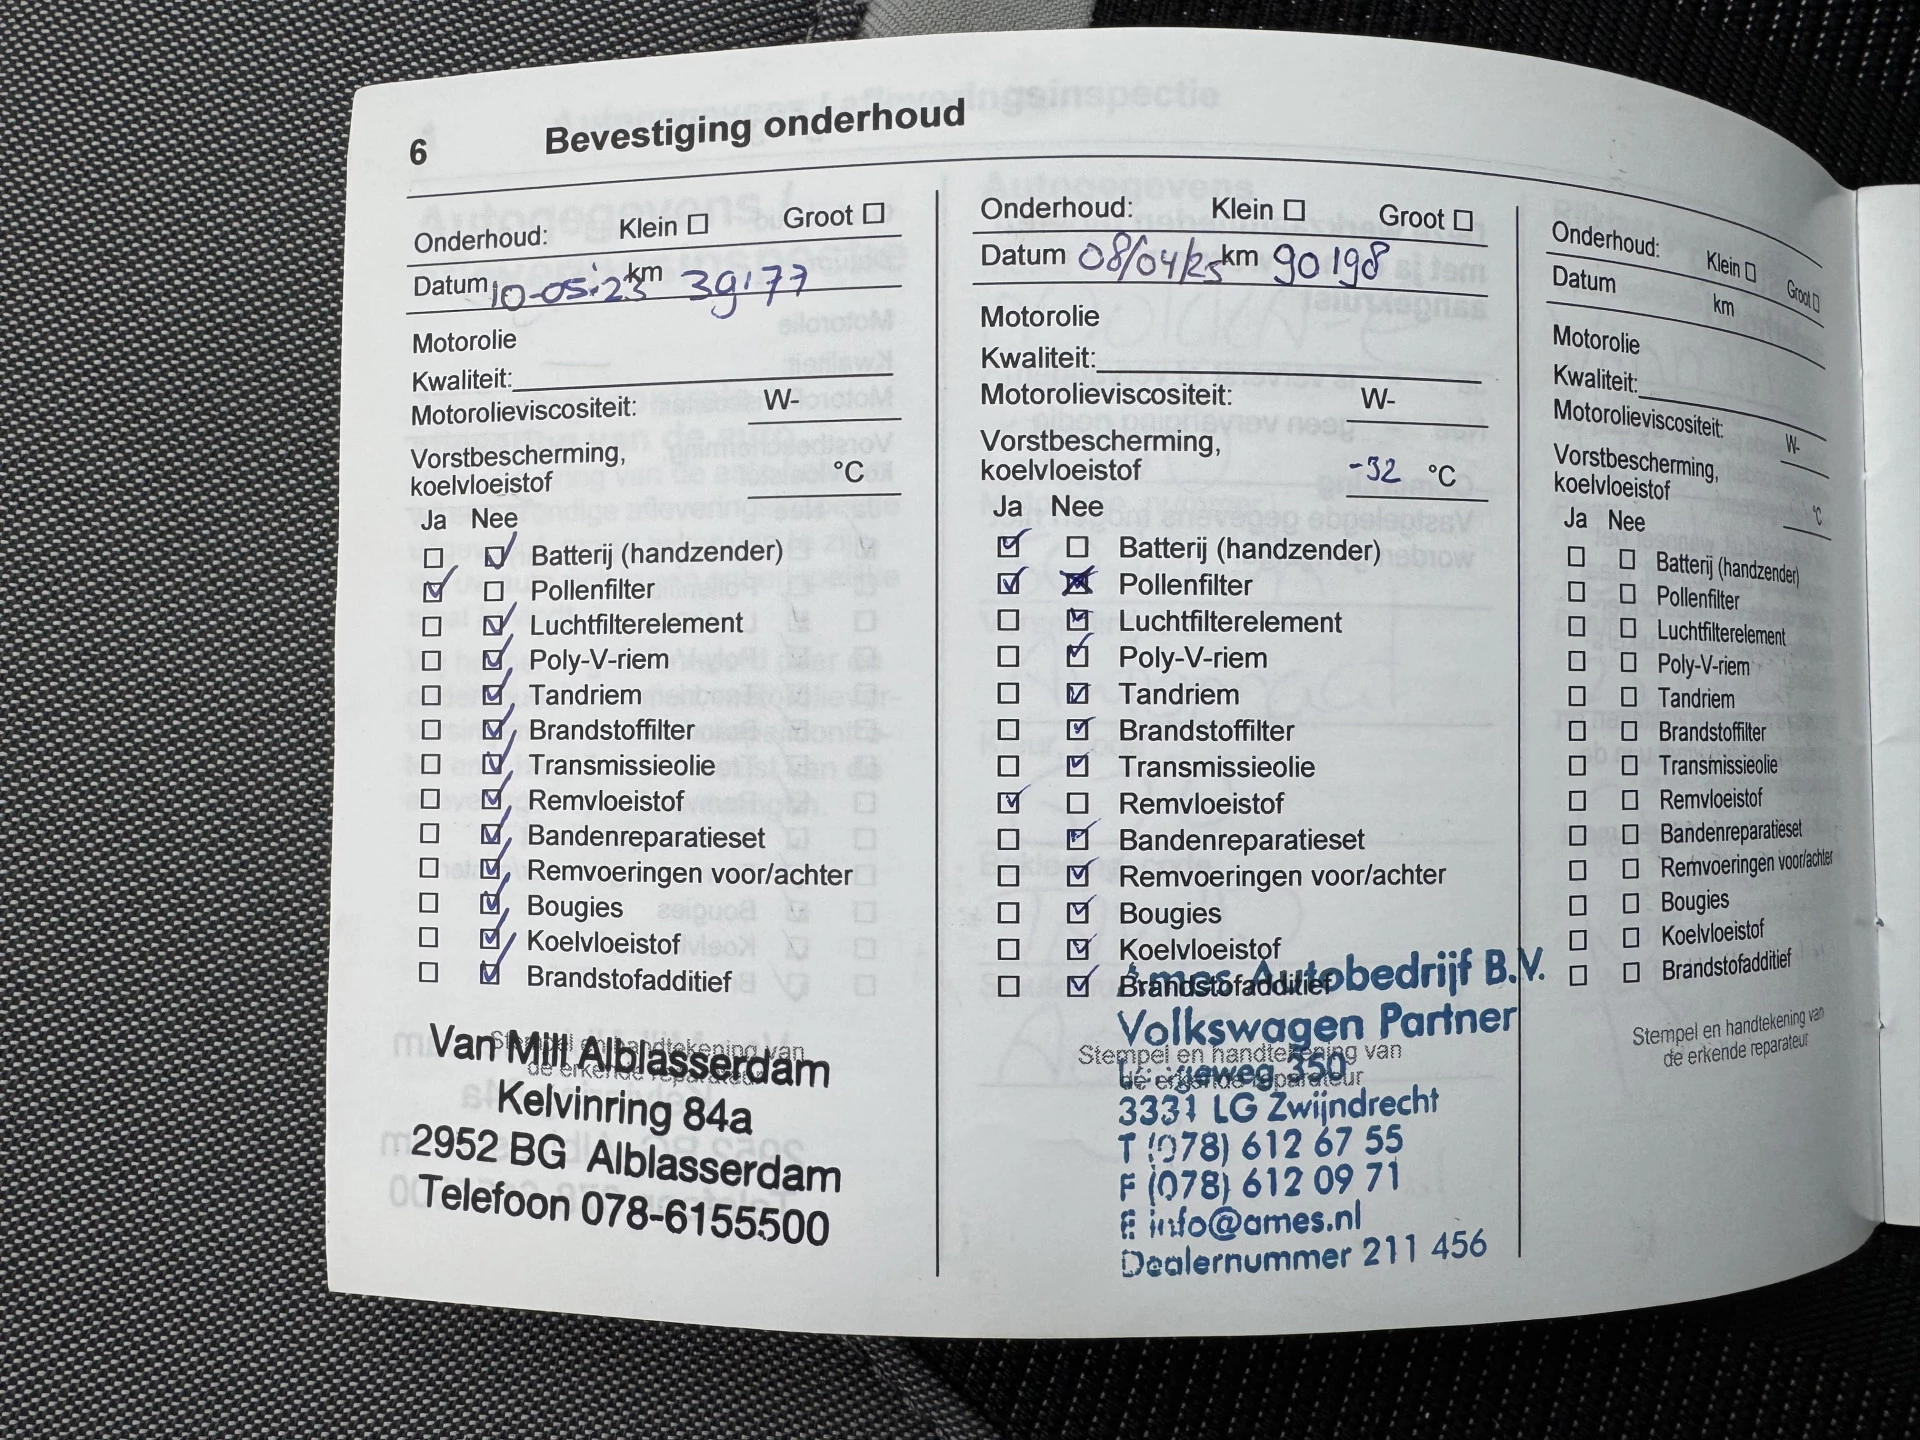 6 Bevestiging onderhoud
Onderhoud: Klein Groot
Datum 10-05-23 km 39177
Motorolie
Kwaliteit:
Motorolieviscositeit: W-
Vorstbescherming,
koelvloeistof °C
Ja Nee
Batterij (handzender)
Pollenfilter
Luchtfilterelement
Poly-V-riem
Tandriem
Brandstoffilter
Transmissieolie
Remvloeistof
Bandenreparatieset
Remvoeringen voor/achter
Bougies
Koelvloeistof
Brandstofadditief
Stempel en handtekening van
de erkende reparateur
Van Mill Alblasserdam
Kelvinring 84a
2952 BG Alblasserdam
Telefoon 078-6155500
Onderhoud: Klein Groot
Datum 08/04/25 km 90198
Motorolie
Kwaliteit:
Motorolieviscositeit: W-
Vorstbescherming,
koelvloeistof -32 °C
Ja Nee
Batterij (handzender)
Pollenfilter
Luchtfilterelement
Poly-V-riem
Tandriem
Brandstoffilter
Transmissieolie
Remvloeistof
Bandenreparatieset
Remvoeringen voor/achter
Bougies
Koelvloeistof
Brandstofadditief
Stempel en handtekening van
de erkende reparateur
Ames Autobedrijf B.V.
Volkswagen Partner
350
3331 LG Zwijndrecht
T (078) 612 67 55
F (078) 612 09 71
E info@ames.nl
Dealernummer 211 456
Onderhoud: Klein Groot
Datum km
Motorolie
Kwaliteit:
Motorolieviscositeit: W-
Vorstbescherming,
koelvloeistof °C
Ja Nee
Batterij (handzender)
Pollenfilter
Luchtfilterelement
Poly-V-riem
Tandriem
Brandstoffilter
Transmissieolie
Remvloeistof
Bandenreparatieset
Remvoeringen voor/achter
Bougies
Koelvloeistof
Brandstofadditief
Stempel en handtekening van
de erkende reparateur